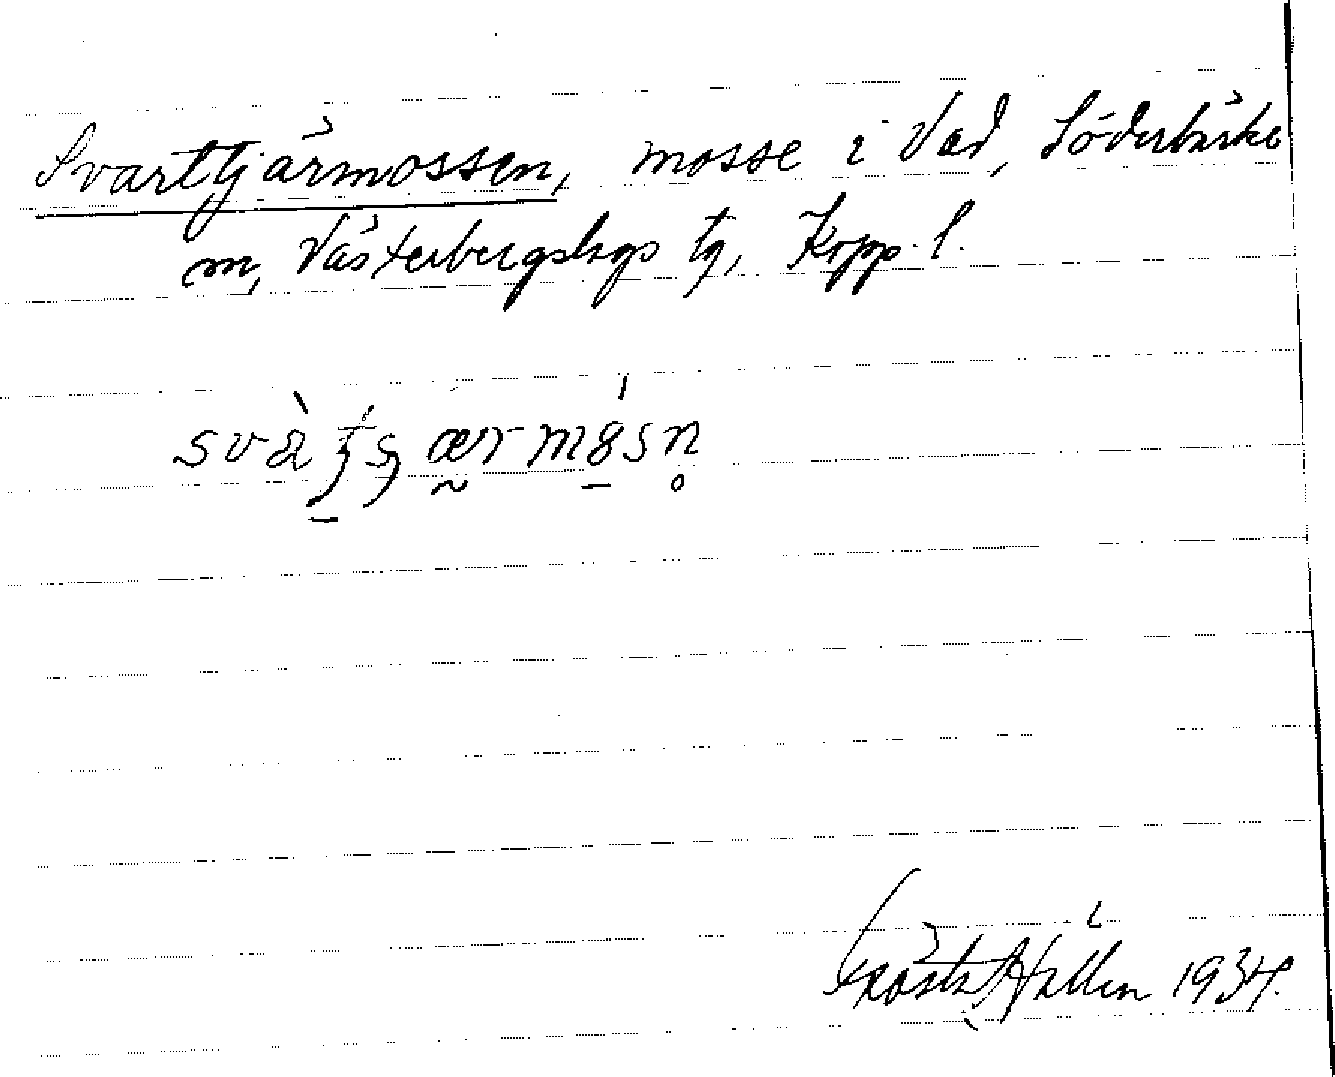 Svarttjärmossen, mosse i Vad, Söderbärke
m, Västerbergslags tg, Kopp. l.
Gösta Hallén 1934.